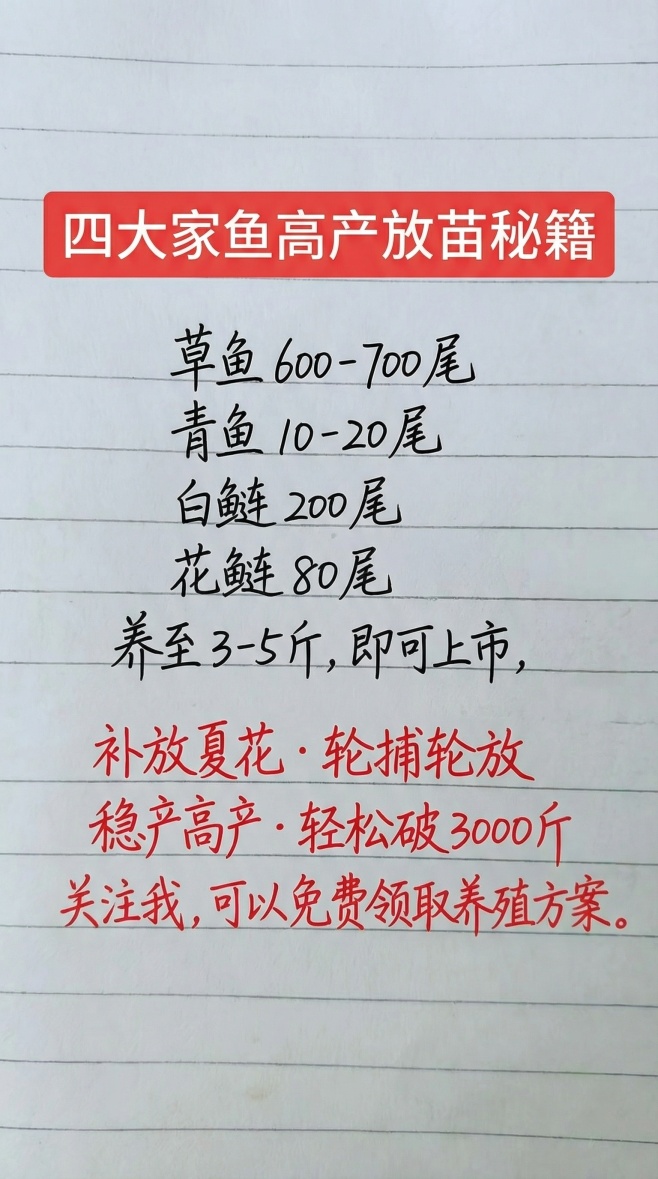 四大家鱼高产放苗秘籍
草鱼600-700尾
青鱼10-20尾
白鲢200尾
花鲢80尾
养至3-5斤,即可上市,
补放夏花·轮捕轮放
稳产高产·轻松破3000斤
关注我,可以免费领取养殖方案。